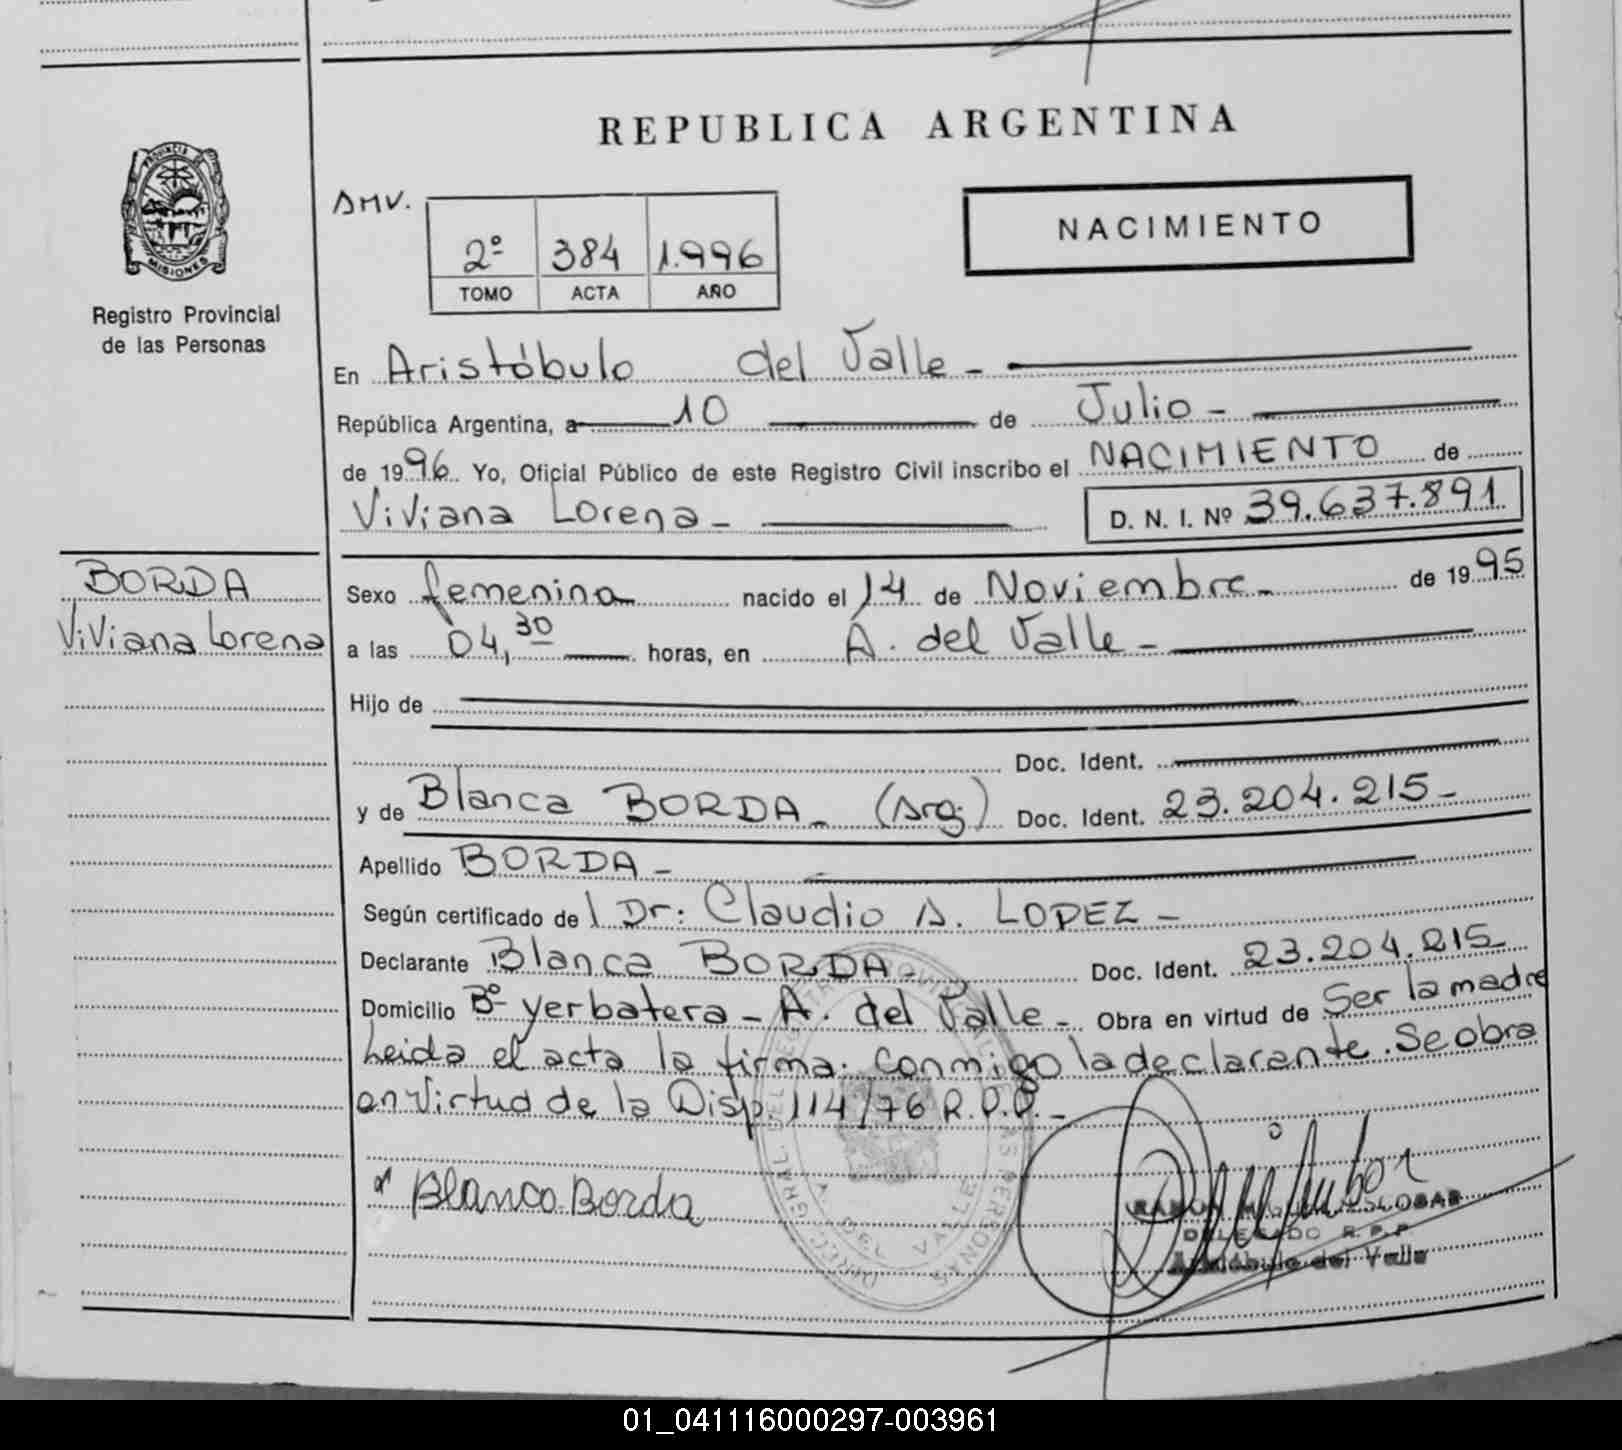 REPUBLICA ARGENTINA
PROVINCIA DE
MISIONES
Registro Provincial
de las Personas
AMV.
2º 384 1.996
TOMO ACTA AÑO
NACIMIENTO
En Aristóbulo del Valle -
República Argentina, a 10 de Julio -
de 1996. Yo, Oficial Público de este Registro Civil inscribo el NACIMIENTO de
Viviana Lorena -
D. N. I. Nº 39.637.891
BORDA
Viviana Lorena
Sexo femenina nacido el 14 de Noviembre - de 1995
a las 04,30 horas, en A. del Valle -
Hijo de
Doc. Ident.
y de Blanca BORDA - (Arg.) Doc. Ident. 23.204.215 -
Apellido BORDA -
Según certificado de l Dr: Claudio A. LOPEZ -
Declarante Blanca BORDA - Doc. Ident. 23.204.215
Domicilio Bº yerbatera - A. del Valle - Obra en virtud de Ser la madre
Leida el acta la firma conmigo la declarante. Se obra
en virtud de la Disp. 114/76 R.P.P. -
Blanca Borda
RAMON ESCOBAR
DELEGADO R. P. P.
Aristóbulo del Valle
01_041116000297-003961